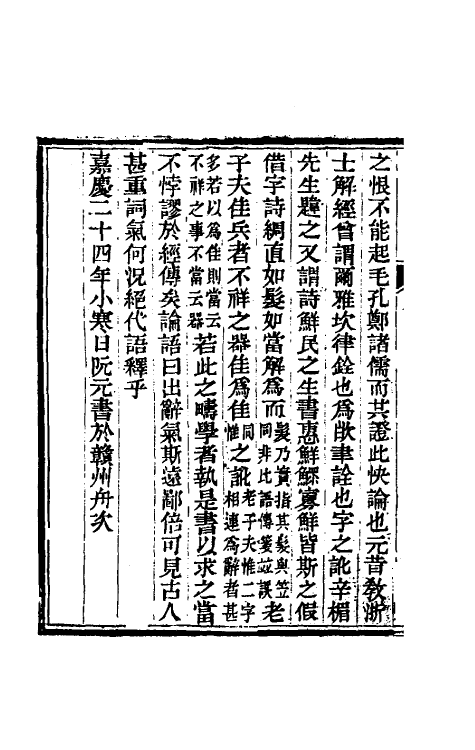 之恨不能起毛孔鄭諸儒而共證此快論也元昔教浙
士解經曾謂爾雅坎律銓也為欥聿詮也字之訛辛楣
先生韙之又謂詩鮮民之生書惠鮮鰥寡鮮皆斯之假
借字詩綢直如髮如當解為而髮乃實指其髮與笠同非比語傳箋竝誤老
子夫佳兵者不祥之器佳為隹同惟之訛老子夫惟二字相連為辭者甚
多若以為佳則當云不祥之事不當云器若此之疇學者執是書以求之當
不悖謬於經傳矣論語曰出辭氣斯遠鄙倍可見古人
甚重詞氣何況絕代語釋乎
嘉慶二十四年小寒日阮元書於贛州舟次